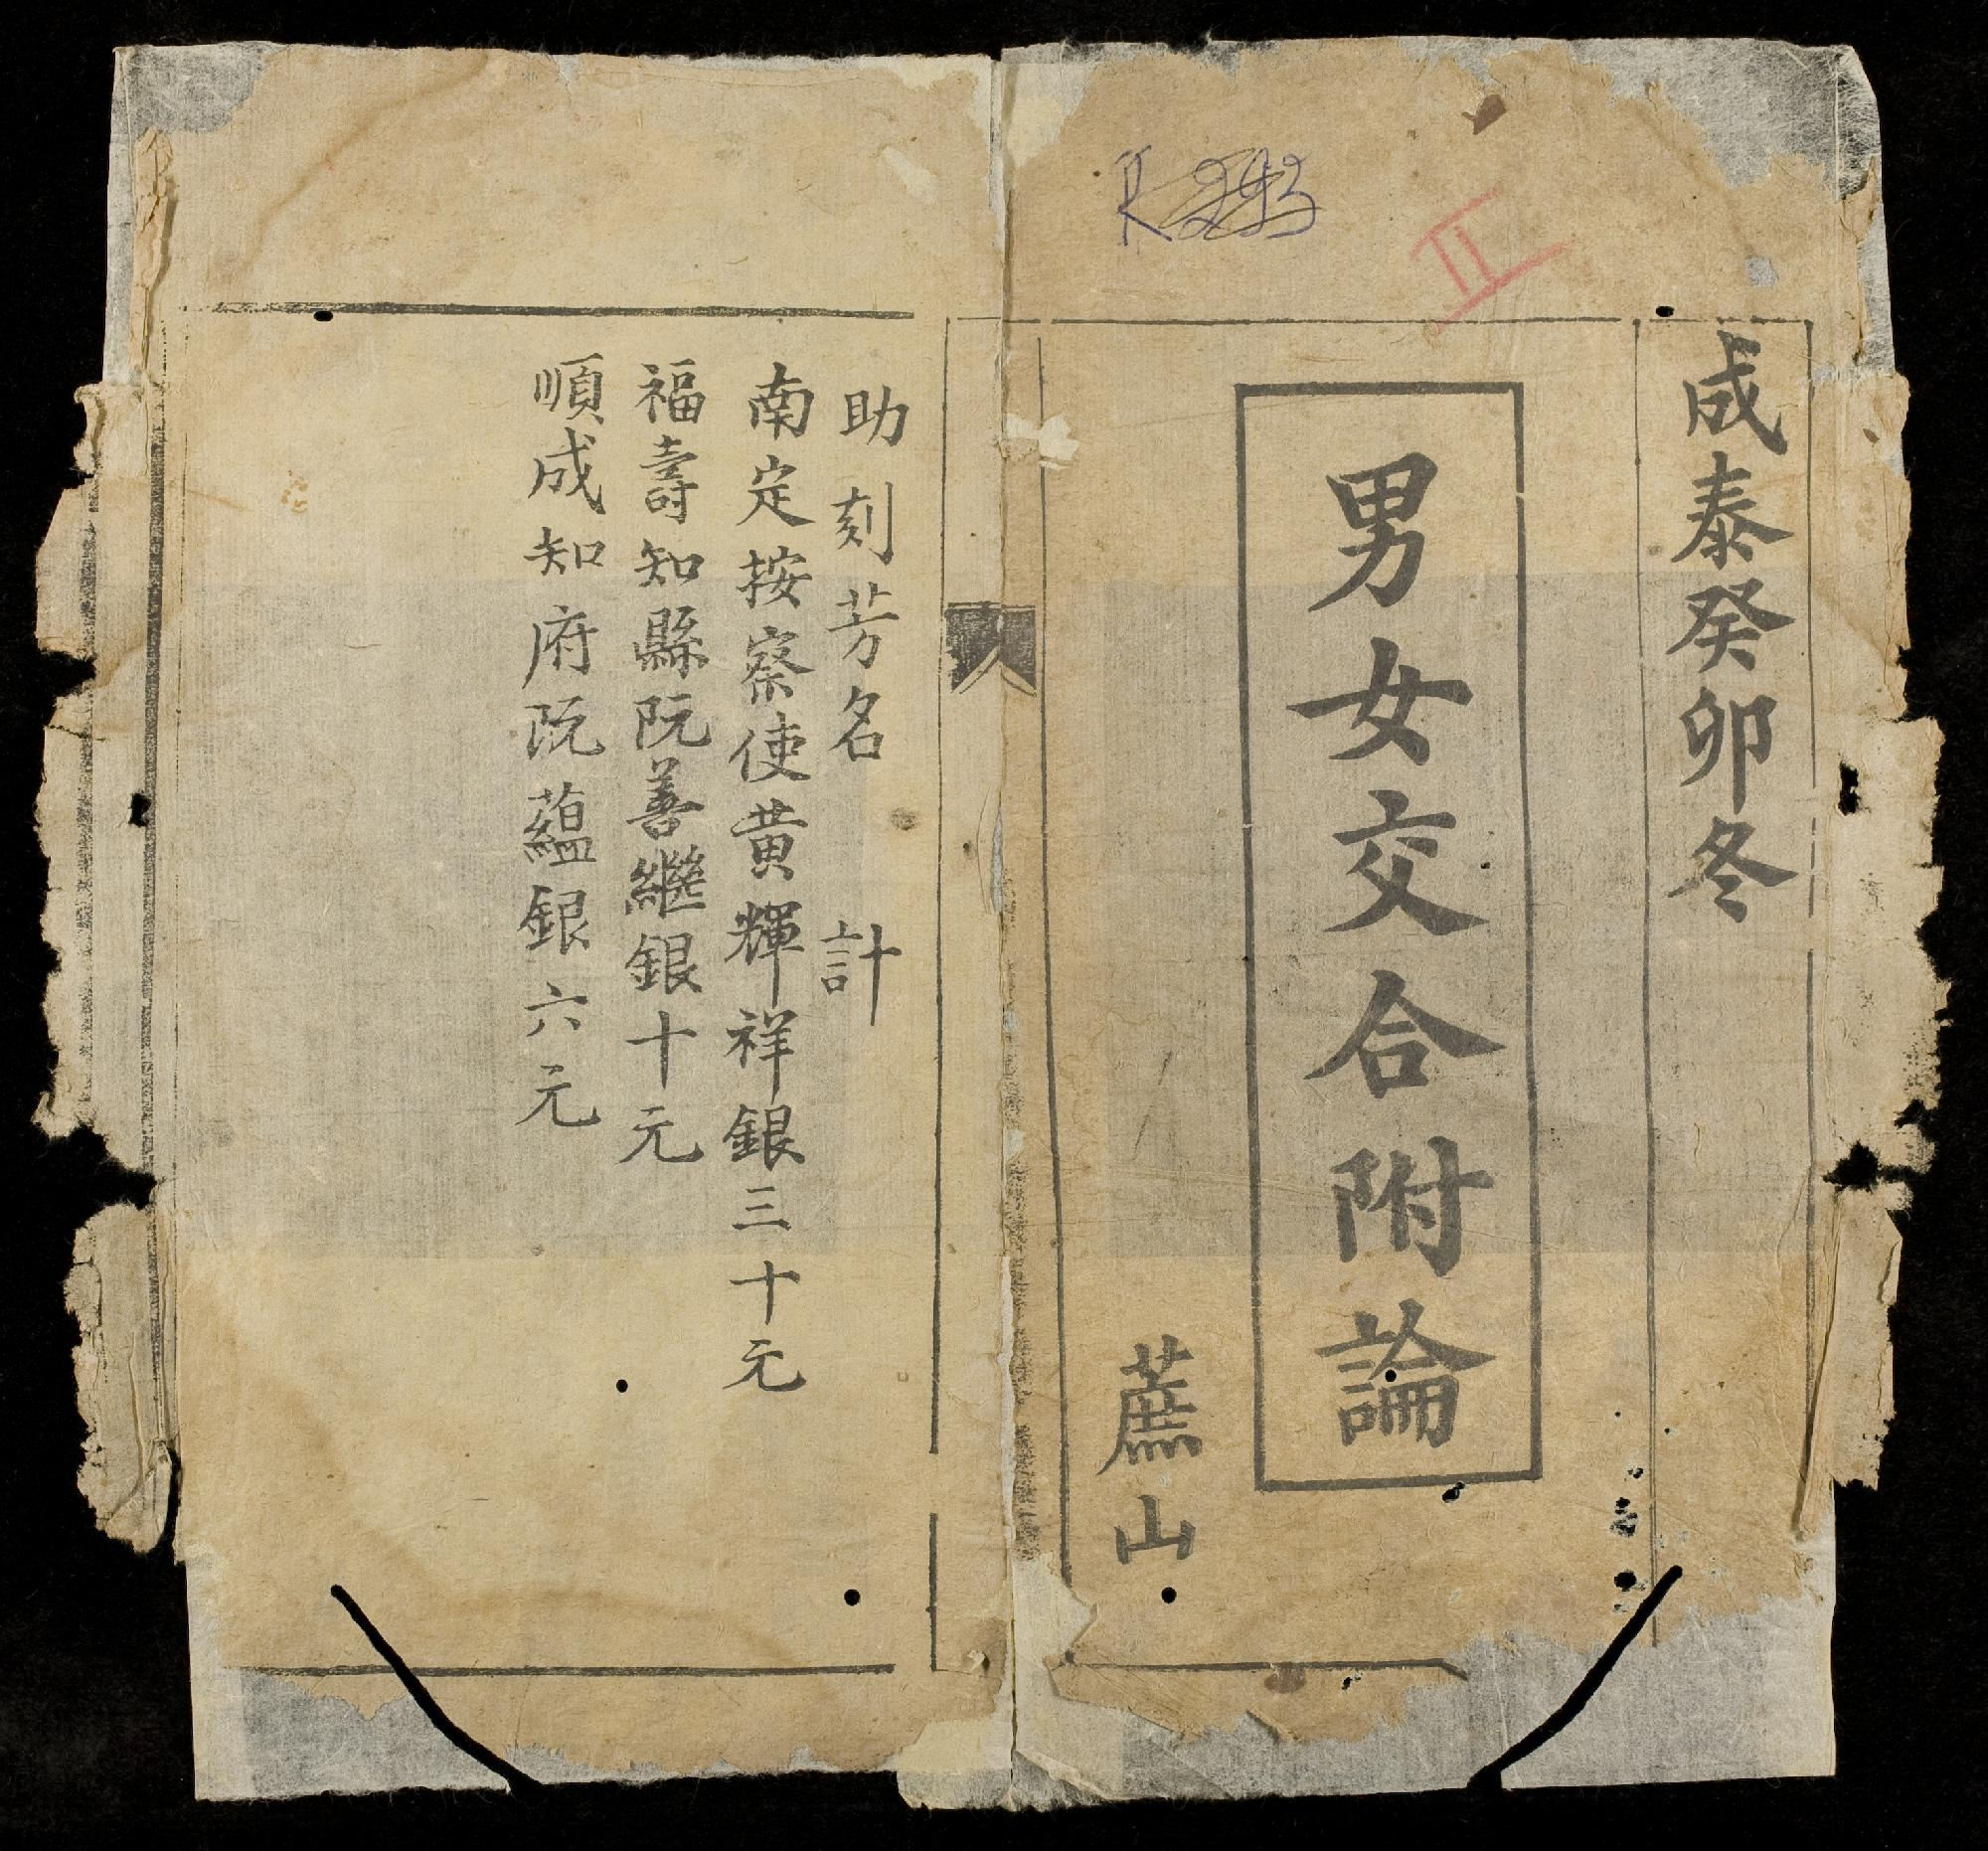 R 293
II
成泰癸卯冬
男女交合附論
蔗山
助刻芳名 計
南定按察使黄輝祥銀三十元
福壽知縣阮善繼銀十元
順成知府阮蘊銀六元